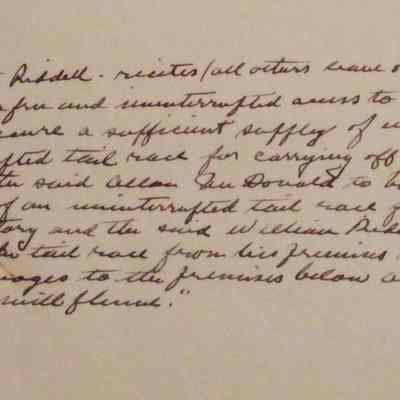 Riddell - recites/all others have
free and uninterrupted access to
a sufficient supply of
tail race for carrying off
said Allan McDonald to
of an uninterrupted tail race
and the said William
tail race from his premises
to the premises below
mill flume."